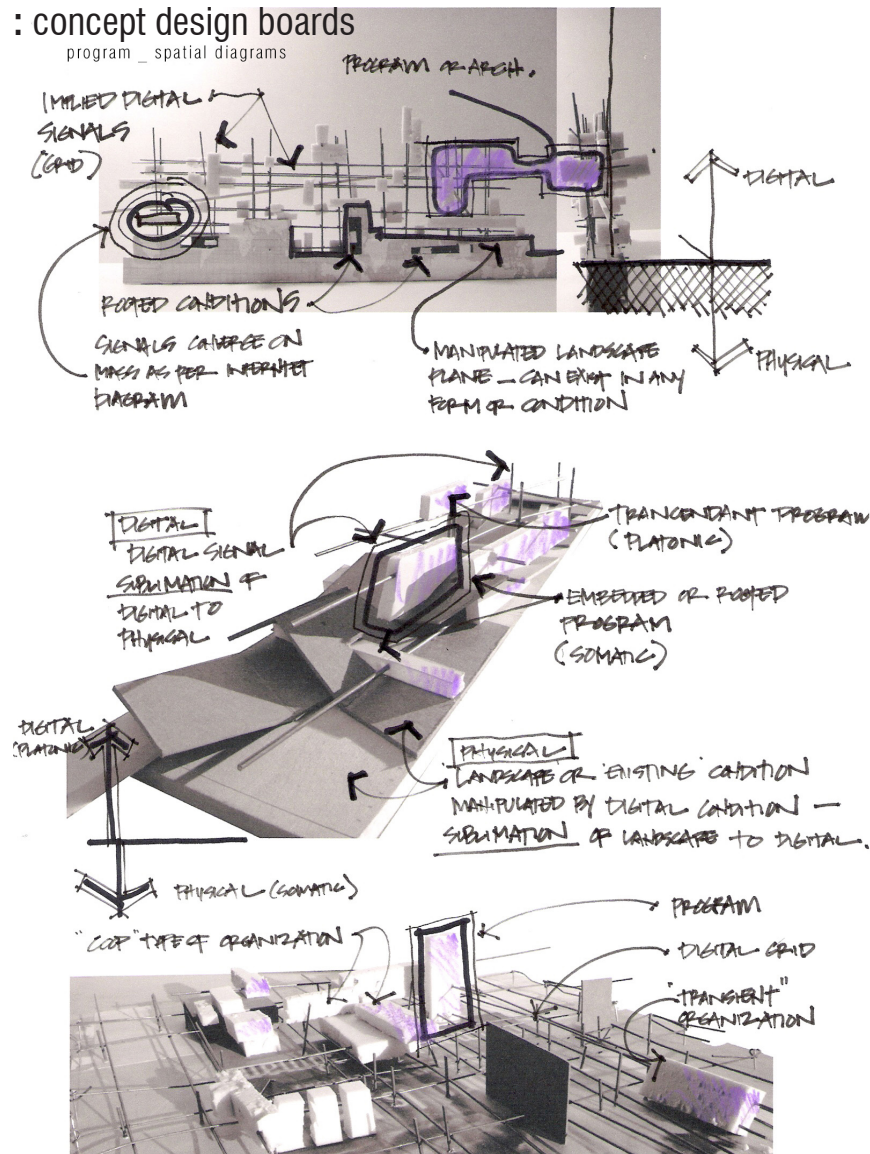 : concept design boards
program _ spatial diagrams
PROGRAM OR ARCH.
IMPLIED DIGITAL
SIGNALS
(GRID)
DIGITAL
ROOTED CONDITIONS
SIGNALS CONVERGE ON
MASS AS PER INTERNET
DIAGRAM
MANIPULATED LANDSCAPE
PLANE — CAN EXIST IN ANY
FORM OR CONDITION
PHYSICAL
DIGITAL
DIGITAL SIGNAL
SUBLIMATION OF
DIGITAL TO
PHYSICAL
TRANCENDANT PROGRAM
(PLATONIC)
EMBEDDED OR ROOTED
PROGRAM
(SOMATIC)
DIGITAL
(PLATONIC)
PHYSICAL
'LANDSCAPE' OR 'EXISTING' CONDITION
MANIPULATED BY DIGITAL CONDITION —
SUBLIMATION OF LANDSCAPE TO DIGITAL.
PHYSICAL (SOMATIC)
"COOP" TYPE OF ORGANIZATION
PROGRAM
DIGITAL GRID
"TRANSIENT"
ORGANIZATION